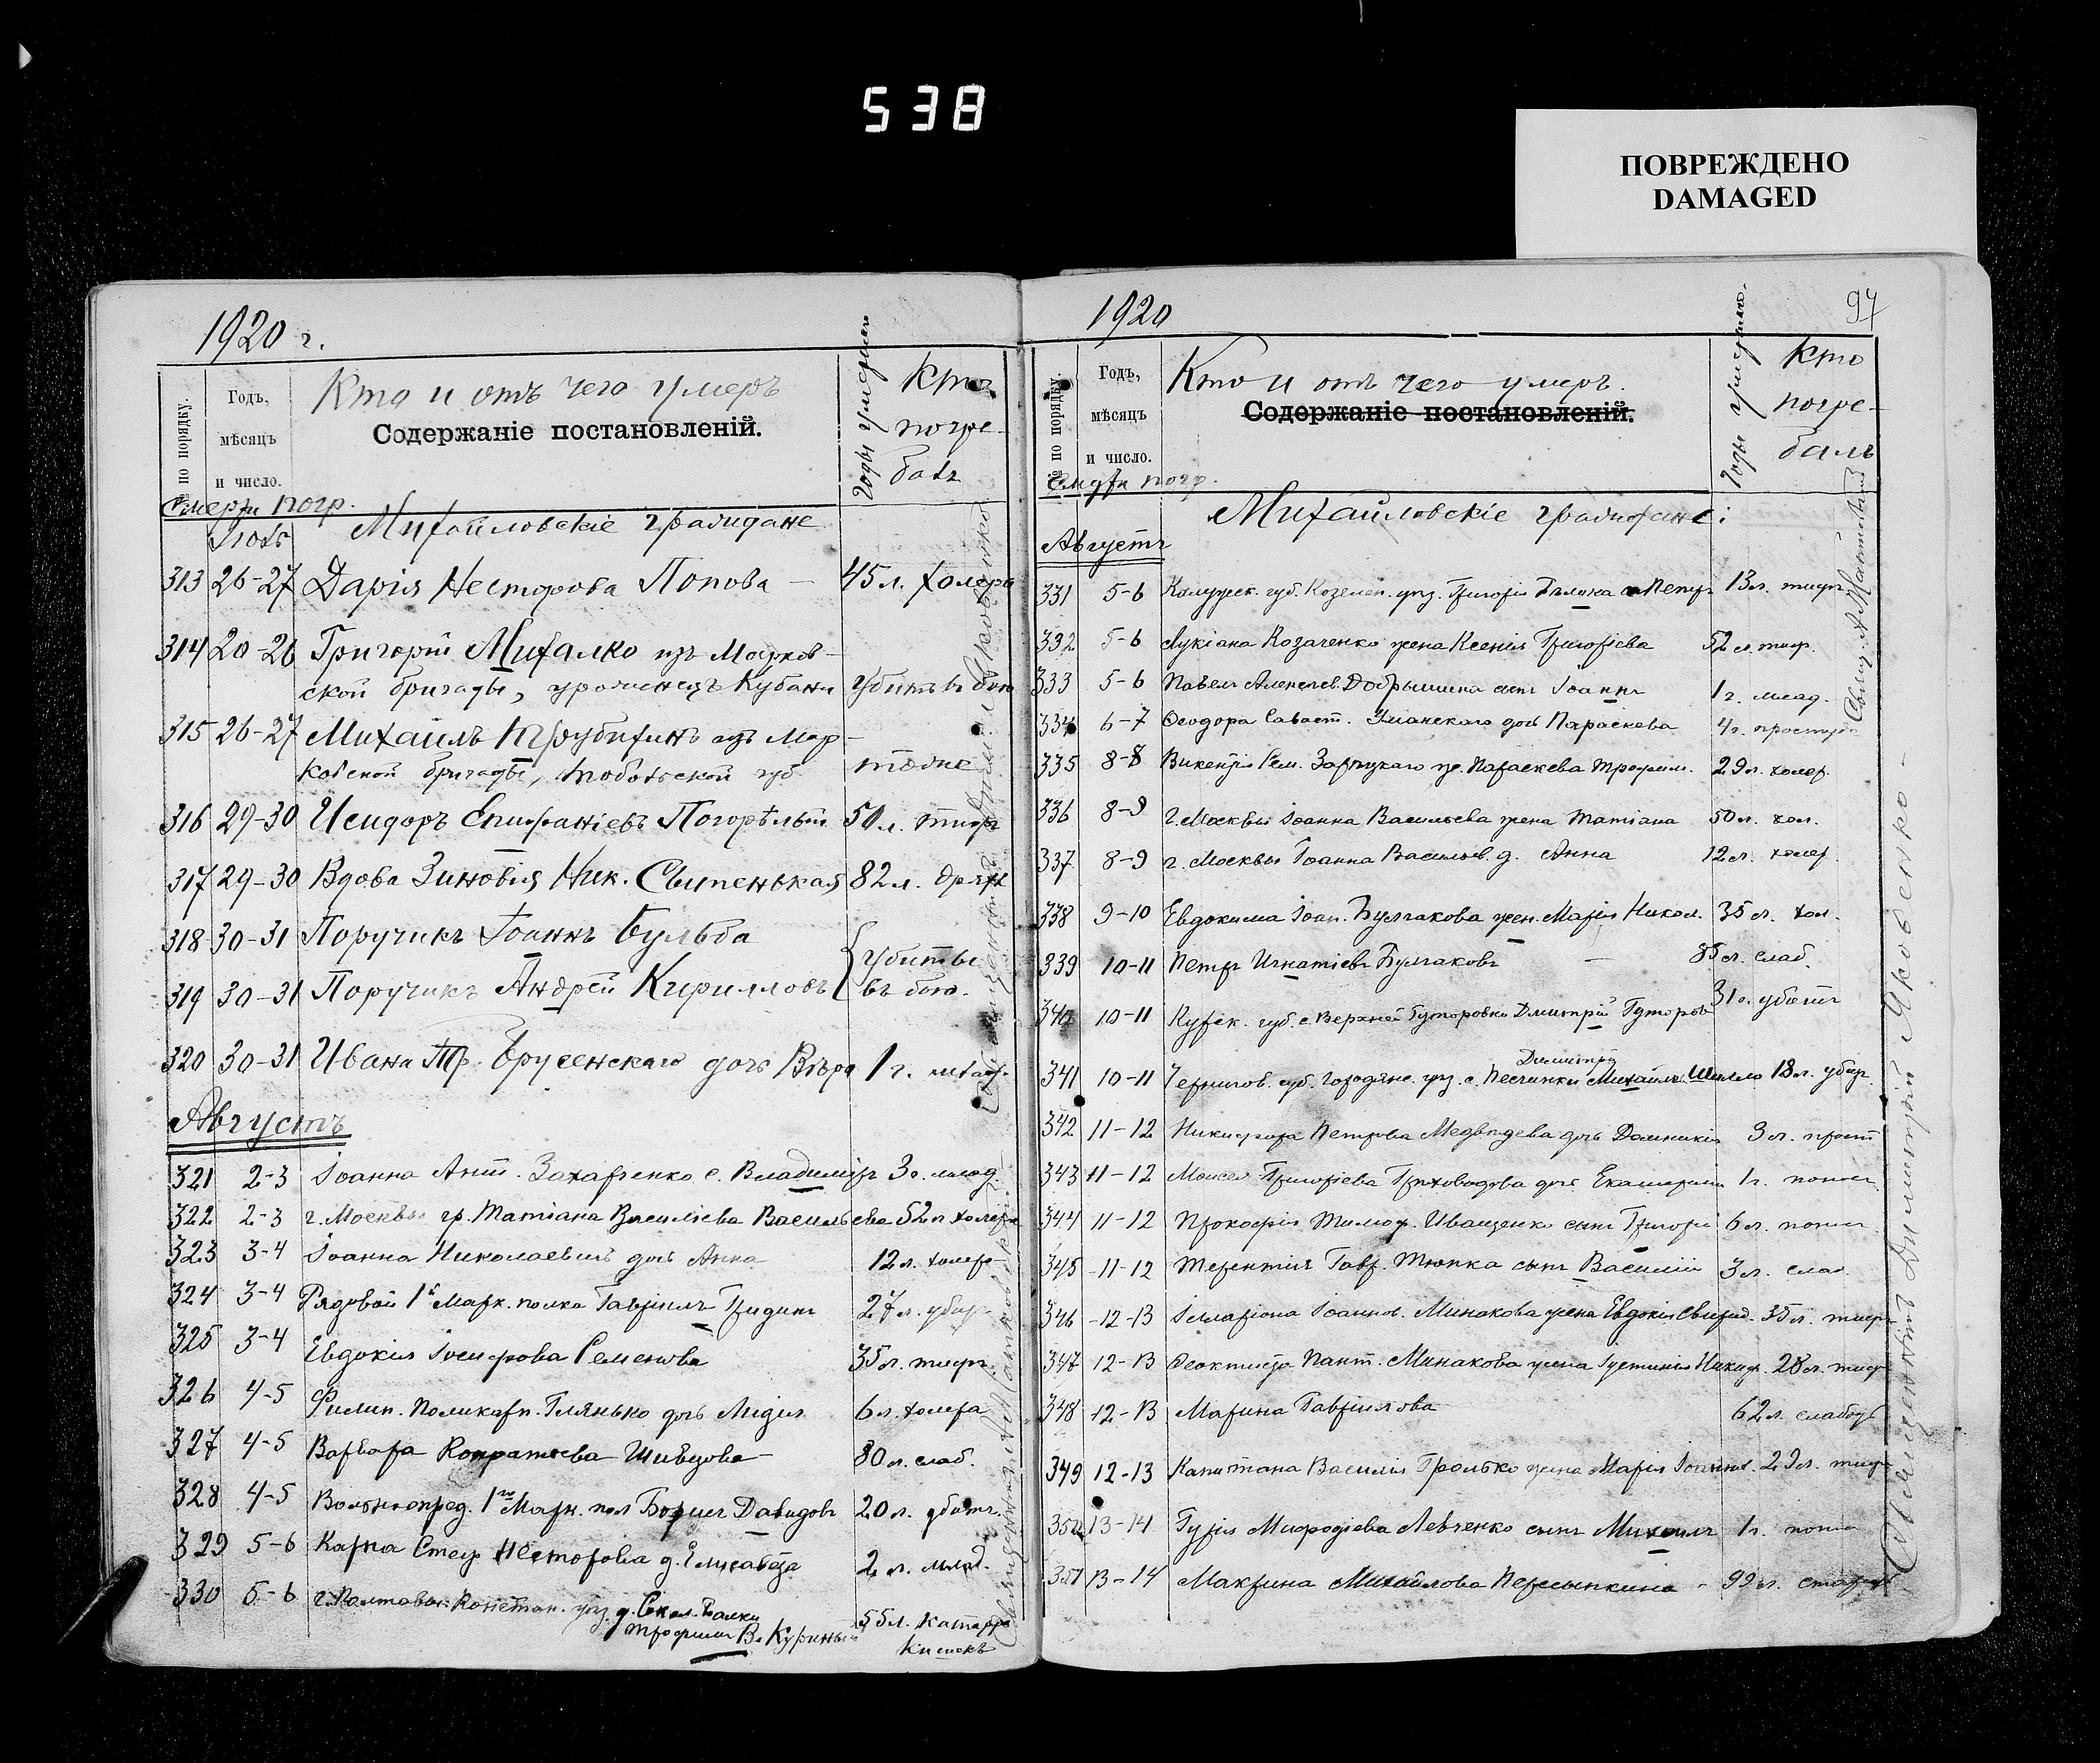 538
ПОВРЕЖДЕНО
DAMAGED
1920 г.
№ по порядку.
Годъ,
мѣсяцъ
и число.
Кто и отъ чего умеръ
Содержаніе постановленій.
Годы умершаго
Кто
погре-
балъ
Смерти погр.
Іюль
Михайловскіе граждане
313 26-27 Дарія Несторова Попова — 45 л. холера
314 20-26 Григорій Михалко изъ Марков-
ской бригады, уроженецъ Кубани убитъ въ бою
315 26-27 Михаилъ Трубихинъ изъ Мар-
ковской бригады, Тобольской губ. тоже
316 29-30 Исидоръ Епифаніевъ Погорѣлый 50 л. тифъ
317 29-30 Вдова Зиновія Ник. Сытенькая 82 л. дряхл
318 30-31 Поручикъ Іоаннъ Бульба
убиты
319 30-31 Поручикъ Андрей Кирилловъ въ бою.
320 30-31 Ивана Тр. Брусенскаго дочь Вѣра 1 г. млад.
Августъ
321 2-3 Іоанна Ант. Захарченко с. Владиміръ 3 г. млад.
322 2-3 г. Москвы гр. Татіана Василіева Васильева 52 л. холера
323 3-4 Іоанна Николаевичъ дочь Анна 12 л. холера
324 3-4 Рядовой 1го Марк. полка Гавріилъ Гридинъ 27 л. убит
325 3-4 Евдокія Іосифова Семенова 35 л. тифъ
326 4-5 Филип. Поликарп. Глянько дочь Лидія 6 л. холера
327 4-5 Варвара Кондратьева Шивцова — 80 л. слаб.
328 4-5 Вольноопред. 1го Марк. пол Борисъ Давидовъ 20 л. убитъ.
329 5-6 Карпа Стеф. Несторова д. Елисавета 2 л. млад.
330 5-6 г. Полтавы. Констан. уѣз. д. Сокол. Балки
Трофимъ В. Куринный 55 л. катарръ
кишекъ
Священникъ Димитрій Яковенко
1920
97
№ по порядку.
Годъ,
мѣсяцъ
и число.
Кто и отъ чего умеръ.
Содержаніе постановленій.
Годы умершаго.
Кто
погре-
балъ
Смерти погр.
Михайловскіе граждане:
Августъ
331 5-6 Калужск. губ. Козельск. уѣз. Григорія Бѣлова с. Петръ 13 л. тифъ.
332 5-6 Лукіана Козаченко жена Ксенія Григоріева 52 л. тиф.
333 5-6 Павелъ Алексеев. Добрышина сынъ Іоаннъ 1 г. млад.
334 6-7 Ѳеодора Саваст. Уманскаго дочь Параскева 4 г. простуда
335 8-8 Викентія Сем. Зарѣцкаго ж. Параскева Трофим. 29 л. холер.
336 8-9 г. Москвы Іоанна Васильева жена Татіана 50 л. хол.
337 8-9 г. Москвы Іоанна Васильев. д. Анна 12 л. холер.
338 9-10 Евдокима Іоан. Булгакова жен. Марія Никол. 35 л. хол.
339 10-11 Петръ Игнатіевъ Булгаковъ — 85 л. слаб.
340 10-11 Курск. губ. с. Верхней Гуторовки Димитрій Гуторовъ 31 г. убитъ
Димитрій
341 10-11 Чернигов. губ. Городянс. уѣз. с. Песчанки Михаилъ Шилло 18 л. убит.
342 11-12 Никифора Петрова Медвѣдева дочь Домникія 3 л. прост
343 11-12 Моисея Григоріева Грѣховодова дочь Екатерина 1 г. понос.
344 11-12 Прокофія Тимоф. Иващенко сынъ Григорій 6 л. понос
345 11-12 Терентія Гавр. Тюпка сынъ Василій 3 л. слаб.
346 12-13 Илларіона Іоаннов. Минакова жена Евдокія Свирид. 35 л. тифъ
347 12-13 Ѳеоктиста Пант. Минакова жена Іустинія Никиф. 28 л. тиф
348 12-13 Марина Гавріилова 62 л. слабость
349 12-13 Капитана Василія Громыко жена Марія Іоаннов. 29 л. тиф
350 13-14 Гурія Мифодіева Левченко сынъ Михаилъ 1 г. понос
351 13-14 Макрина Михайлова Пересыпкина - 99 л. старость
Священникъ Димитрій Яковенко —